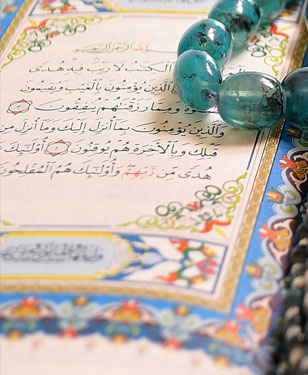 الله الرحمن الرحيم
الْكِتَٰبُ لَا رَيْبَ فِيهِ هُدًى
الَّذِينَ يُؤْمِنُونَ بِالْغَيْبِ وَيُقِيمُونَ
وَمِمَّا رَزَقْنَٰهُمْ يُنْفِقُونَ
وَالَّذِينَ يُؤْمِنُونَ بِمَا أُنْزِلَ إِلَيْكَ وَمَا أُنْزِلَ مِنْ
قَبْلِكَ وَبِالْآخِرَةِ هُمْ يُوقِنُونَ أُولَٰئِكَ
هُدًى مِنْ رَبِّهِمْ وَأُولَٰئِكَ هُمُ الْمُفْلِحُونَ